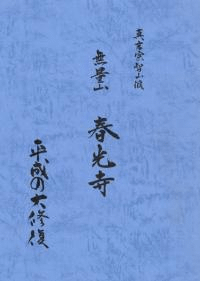 真言宗智山派
無量山
春光寺
平成の大修復